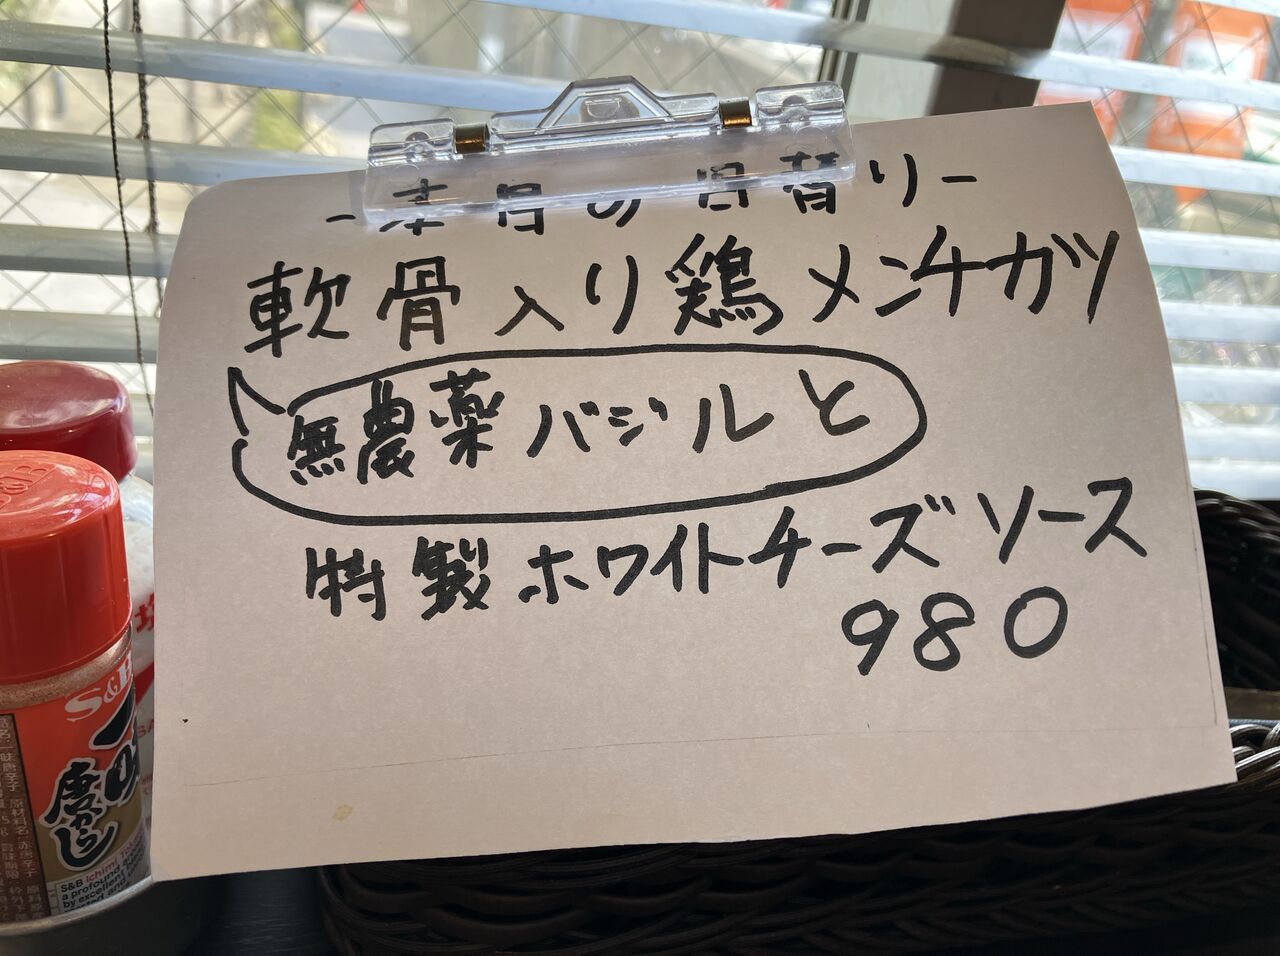 -本日の日替り-
軟骨入り鶏メンチカツ
無農薬バジルと
特製ホワイトチーズソース
980
S&B
S&B
一味
唐がらし
S&B Ichimi
a profound
by excellent